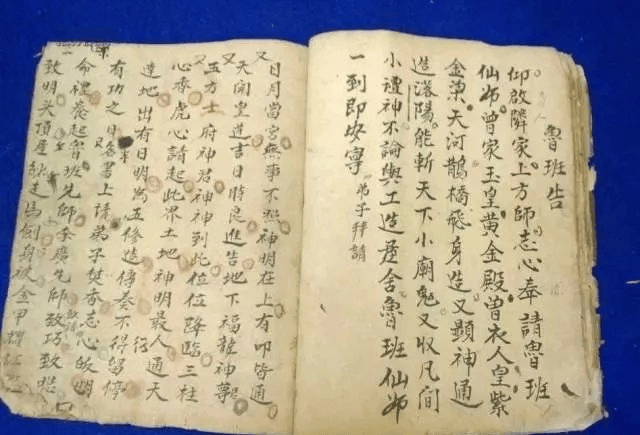 魯班告
仰啟隣家上方師志心奉請魯班
仙师曾家玉皇黃金殿曾衣人皇紫
金藁天河鵲橋飛身造又顕神通
造滏陽能斬天下小廟鬼又収凡间
小禮神不論與工造屋舍魯班仙师
一到即安寧 弟子拜請
又日月當空無事不照神明在上有叩皆通
又天開皇道吉日時良進告地下福龍神尊
又五方土府神君神神到此位位降臨三柱
心香虎心請起此界土地神明最人通天
達地出有日明為五修造傳奏不得留停
有功之日名書上請弟子焚香志心皈明
命禮恭起魯班先師
致明头頂
走馬
身披金甲